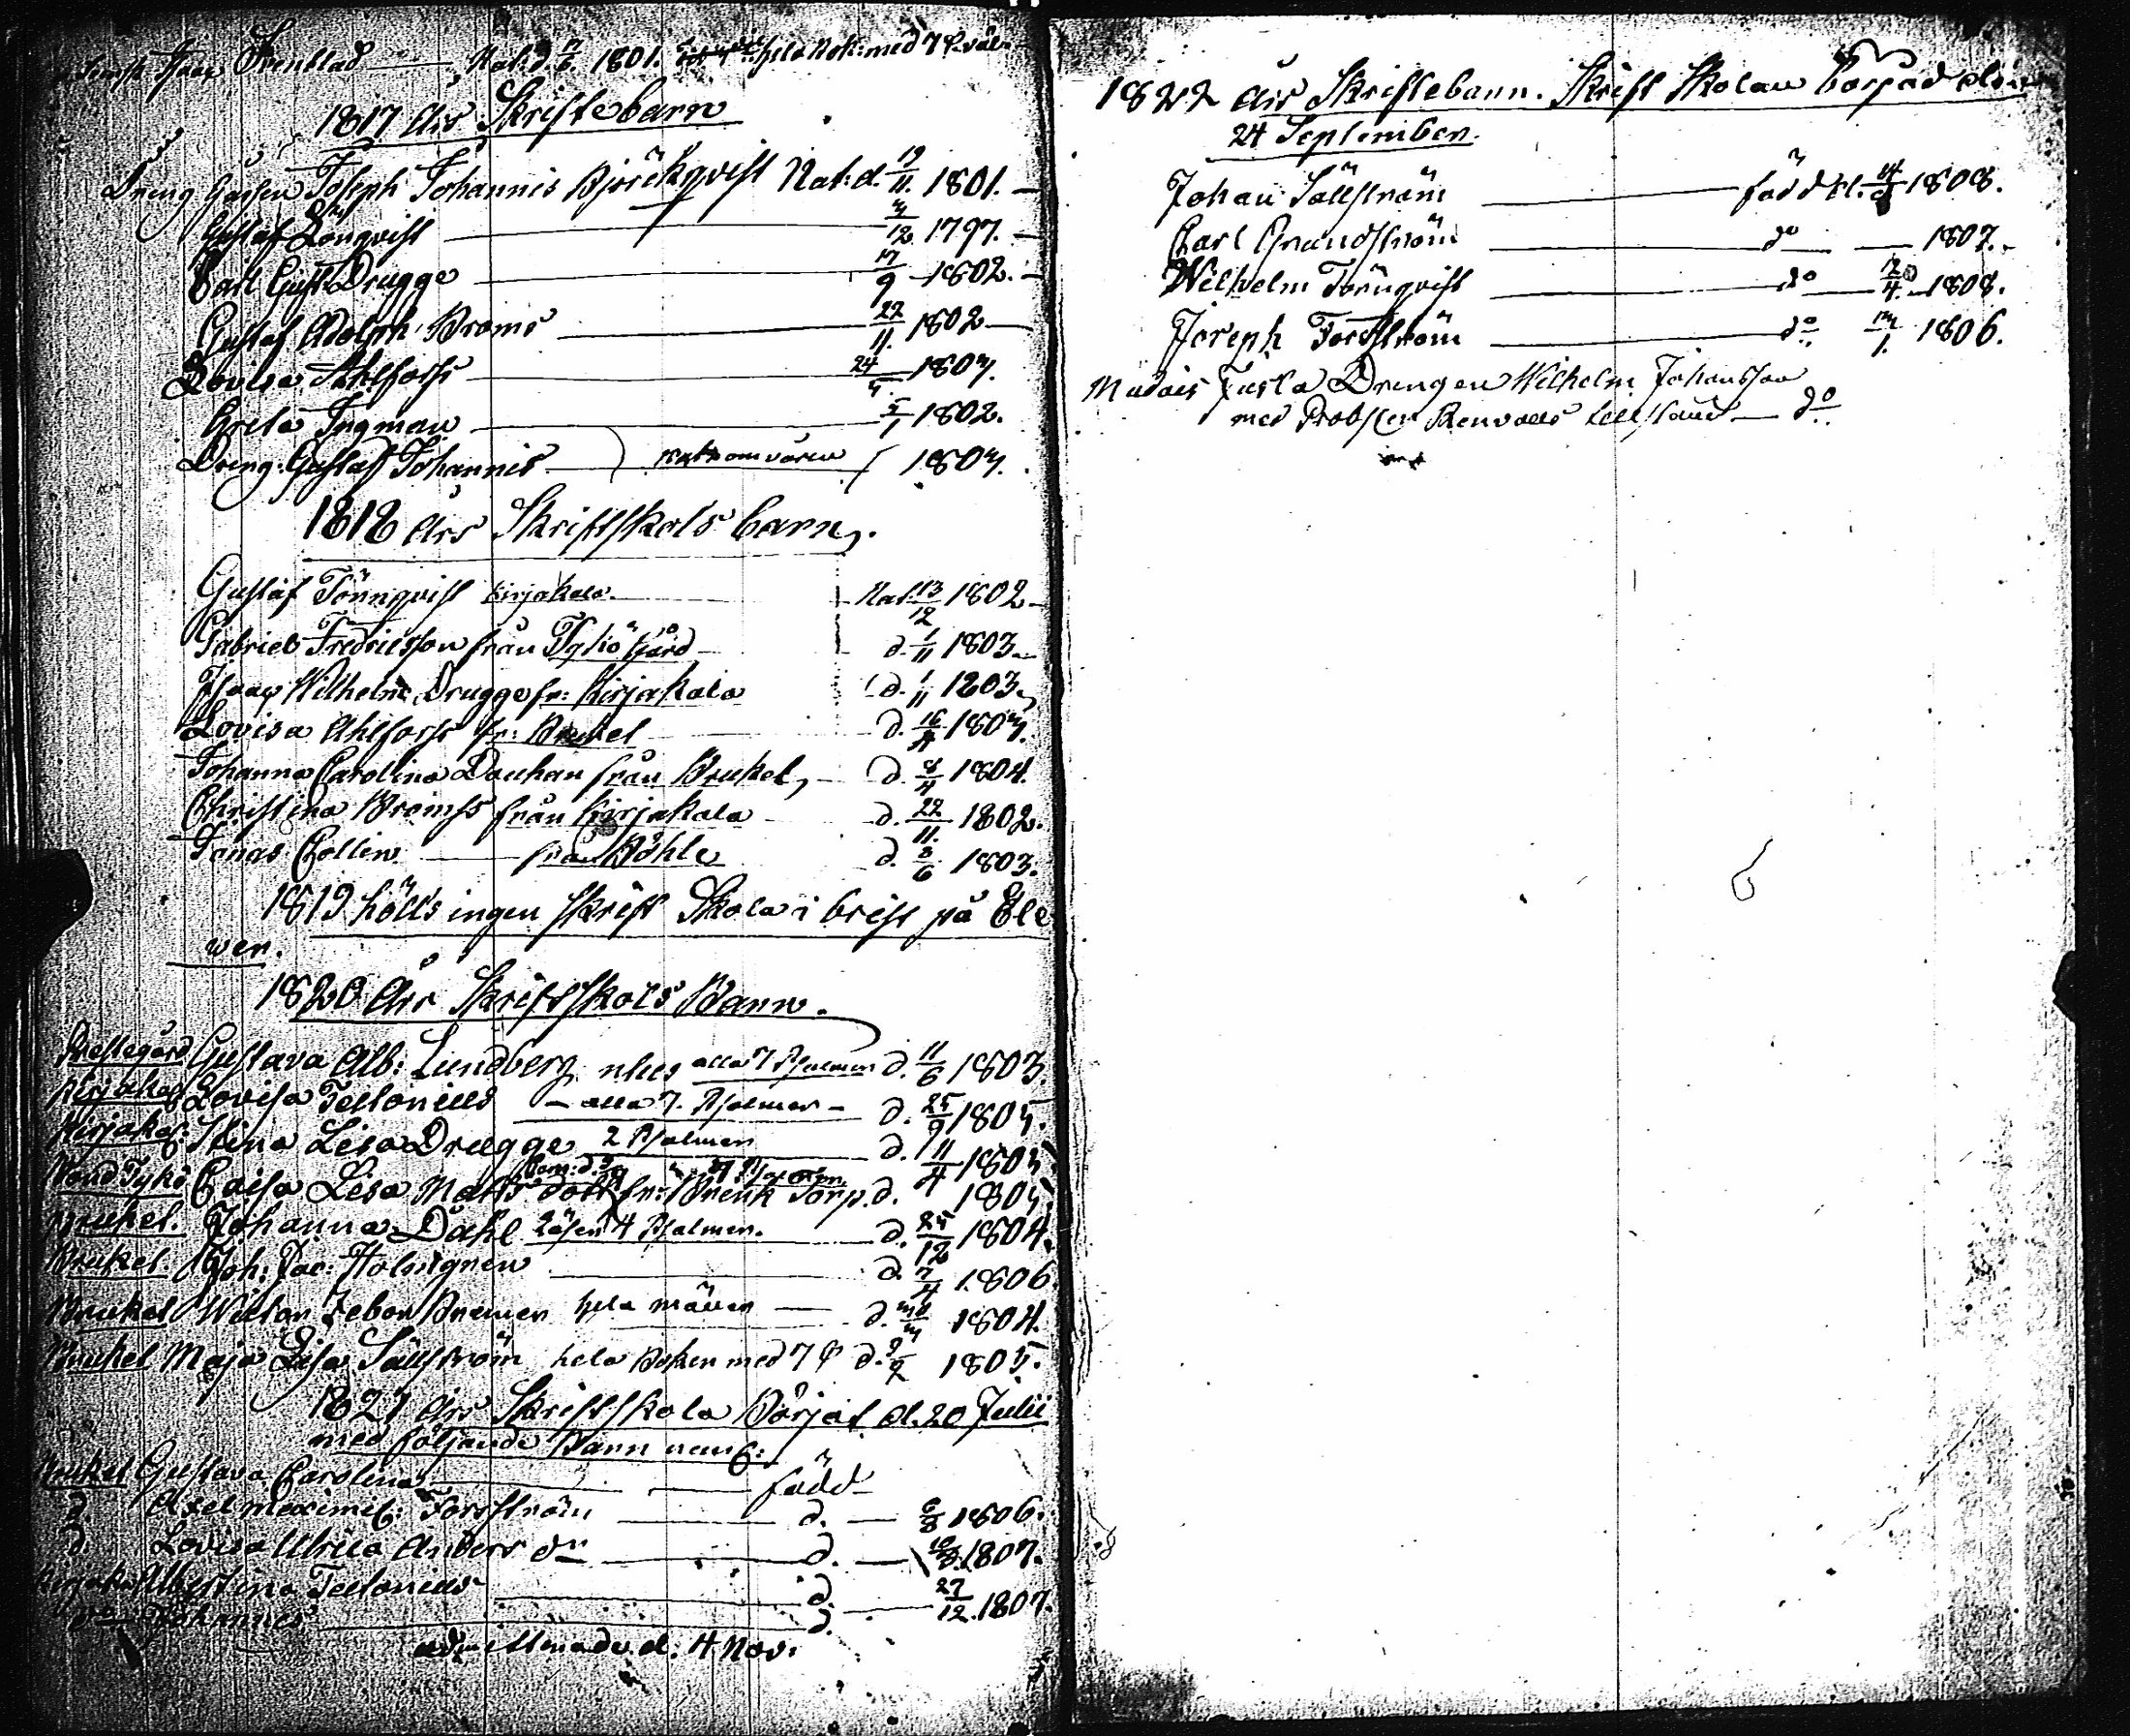 Isaac Stenblad Nat: d. 17/6 1801. hela Bok: med 7 P. väl
1817 Års Skriftebarn
Dreng Gossen Joseph Johannis Björckqvist Nat: d. 19/11. 1801.
Gustaf Lönqvist 3/12 1797.
Carl Gust: Drugge 17/9 1802.
Gustaf Adolph Broms 22/11. 1802
Lovisa Ahlforss 24 1803.
Greta Ingman 5/1 1802.
Dreng. Gustaf Johannis 1803.
1818 Års Skriftskols barn.
Gustaf Törnqvist Kirjakala. Nat. 13/12 1802
Gabriel Fredricsson från Tykö Gård d. 1/11 1803
Isaac Wilhelm Drugge fr: Kirjakala d. 1/11 1803
Lovisa Ahlforss fr: Bruket d. 16/4 1803.
Johanna Carolina Dauhan från Bruket, d. 4/4 1804.
Christina Bromss från Kirjakala d. 22/11. 1802.
Jonas Collin från Böhle d. 8/6 1803.
1819 hölls ingen Skrift Skola i brist på Ele
wer.
1820 Års Skriftskols Barn.
Prestegård Gustava Alb: Lundberg utlus alla 7 Psalmer d. 11/6 1803.
Kirjakal Lovisa Teetonius alla 7. Psalmer d. 25/9 1805.
Kirjakal: Stina Lisa Drugge 2 Psalmer d. 11/4 1805
Tykö Caisa Lisa Matts dotter fr: Brenk Torp. d. 1805
Bruket. Johanna Dahl Läser 4 Psalmer. d. 25/12 1804.
Bruket. Joh: Jac: Holmgren d. 7/4 1806.
Bruket Bremer hela d. 1804.
Bruket Maja Lisa Sällström hela Boken med 7 P d. 9/2 1805.
1821 Års Skriftskola Börjat d. 20 Julii
med följande Barn neml:
Bruket Gustava Carolina född
d. Axel Maximil: Forsström d. 6/8 1806.
d. Lovisa Ulrica Anders dr d. 1807.
Kirjakal Albertina Teetonius d. 27/12. 1807.
do Johannes d.
admitterade d. 4 Nov.
1822 års Skriftebarn. Skrift Skolan börjad den
24 September.
Johan Sällström född d. 14 1808.
Carl Grundström do 1807.
Wilhelm Törnqvist do 12/4. 1808.
Joseph Forsström do 13/1. 1806.
Madais Tusla Drengen Wilhelm Johansson
med Probsten Renvalls tillstånd do